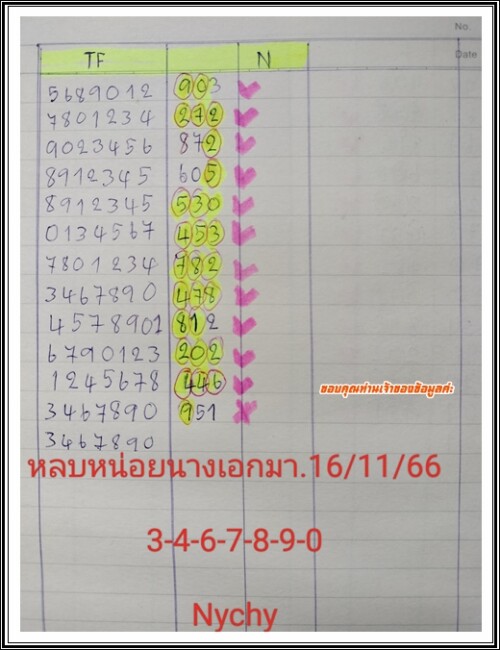 No.
Date
TF N
5689012 903
7801234 272
9023456 872
8912345 605
8912345 530
0134567 453
7801234 782
3467890 478
4578901 812
6790123 202
1245678 446
ขอบคุณท่านเจ้าของข้อมูลค่ะ
3467890 951
3467890
หลบหน่อยนางเอกมา.16/11/66
3-4-6-7-8-9-0
Nychy